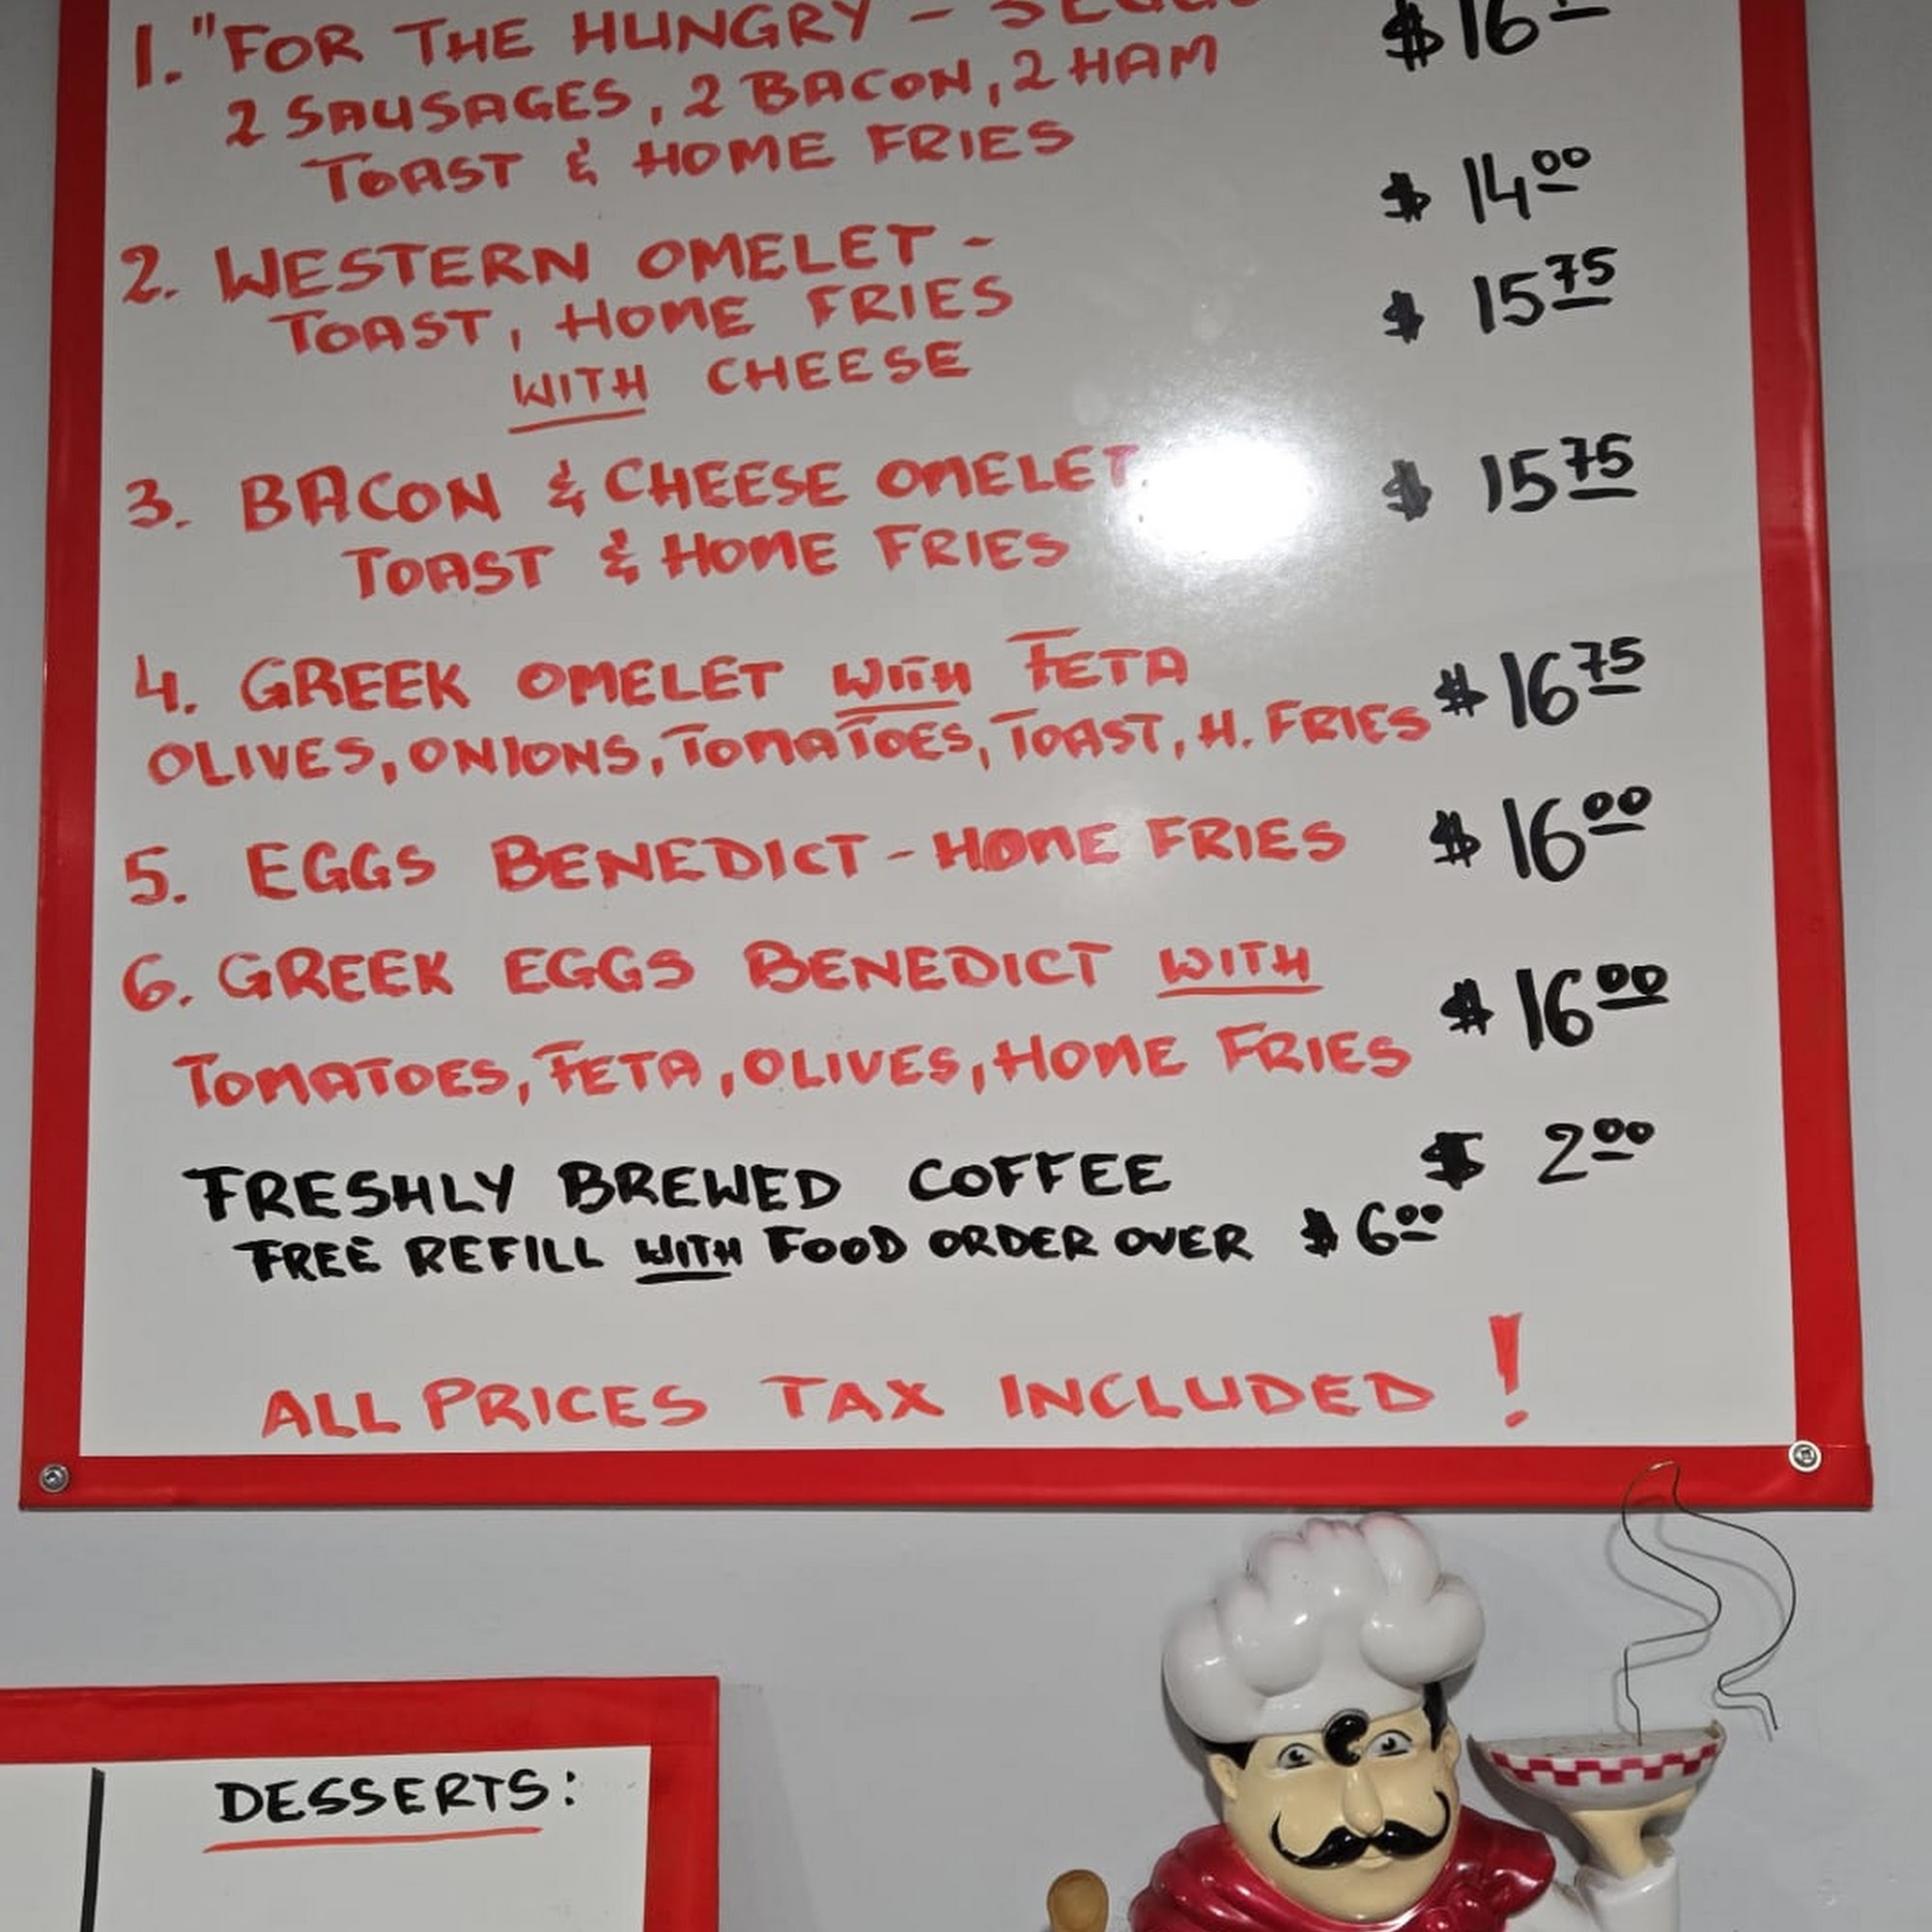 1. "FOR THE HUNGRY - 3 EGGS
$16
2 SAUSAGES, 2 BACON, 2 HAM
TOAST & HOME FRIES
2. WESTERN OMELET - $ 14 00
TOAST, HOME FRIES
WITH CHEESE $ 15 75
3. BACON & CHEESE OMELET $ 15 75
TOAST & HOME FRIES
4. GREEK OMELET WITH FETA $ 16 75
OLIVES, ONIONS, TOMATOES, TOAST, H. FRIES
5. EGGS BENEDICT - HOME FRIES $ 16 00
6. GREEK EGGS BENEDICT WITH $ 16 00
TOMATOES, FETA, OLIVES, HOME FRIES
FRESHLY BREWED COFFEE $ 2 00
FREE REFILL WITH FOOD ORDER OVER $ 6 00
ALL PRICES TAX INCLUDED!
DESSERTS: